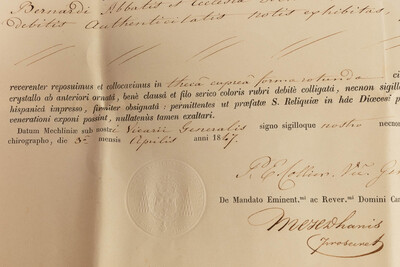 Bernardi Abbatis et Ecclesiæ
Debitis Authenticitatis notis exhibitas,
reverenter reposuimus et collocavimus in thecâ cupreâ formæ rotundæ
crystallo ab anteriori ornatâ, benè clausâ et filo serico coloris rubri debitè colligatâ, necnon sigillo
hispanicâ impresso, firmiter obsignatâ: permittentes ut præfatæ S. Reliquiæ in hâc Diœcesi p
venerationi exponi possint, nullatenùs tamen exaltari.
Datum Mechliniæ sub nostri Vicarii Generalis signo sigilloque nostro necno
chirographo, die 8ª mensis Aprilis anni 1847.
P. C. Vic Gen
De Mandato Eminent.mi ac Rever.mi Domini Ca
prosecret